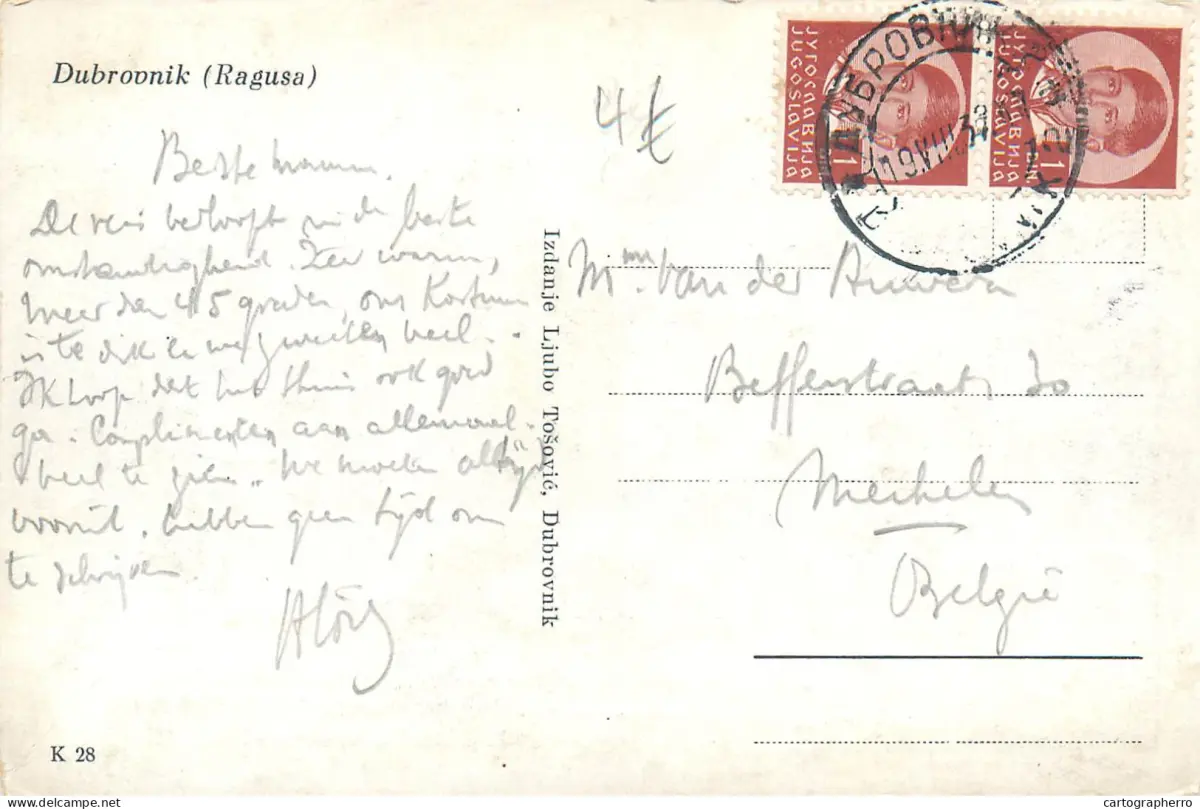 Dubrovnik (Ragusa)
4 €
ЈУГОСЛАВИЈА
JUGOSLAVIJA
1
ЈУГОСЛАВИЈА
JUGOSLAVIJA
1
DIN
ДУБРОВНИК
19.VIII.3
Beste mam.
De reis verloopt in de beste
omstandigheid. Zeer warm,
meer dan 45 graden, ons Kostuum
is te dik en we zweeten veel.
Ik hoop dat het thuis ook goed
ga. Complimenten aan allemaal.
veel te zien. We moeten altijd
vooruit, hebben geen tijd om
te schrijven.
Izdanje Ljubo Tošović, Dubrovnik
Mme. Van der Auwera
Befferstraat 30
Mechelen
België
K 28
cartographerro